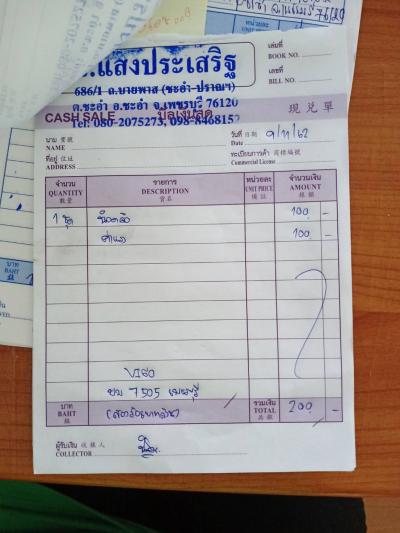 ส.แสงประเสริฐ
686/1 ถ.บายพาส (ชะอำ-ปราณฯ)
ต.ชะอำ อ.ชะอำ จ.เพชรบุรี 76120
Tel: 080-2075273, 098-8468157
เล่มที่
BOOK NO.
เลขที่
BILL NO.
CASH SALE บิลเงินสด 現兌單
นาม 寶號
NAME
วันที่ 日期 9/11/62
Date
ที่อยู่ 住址
ADDRESS
ทะเบียนการค้า 商標編號
Commercial License
จำนวน รายการ หน่วยละ จำนวนเงิน
QUANTITY DESCRIPTION UNIT PRICE AMOUNT
數量 貨名 備註 銀額
1 ชุด น็อตล้อ 100 -
ค่าแรง 100 -
VIGO
บม 7505 เพชรบุรี
บาท
BAHT
銖
(สองร้อยบาทถ้วน)
รวมเงิน
TOTAL
共銀
200 -
ผู้รับเงิน 收款人
COLLECTOR